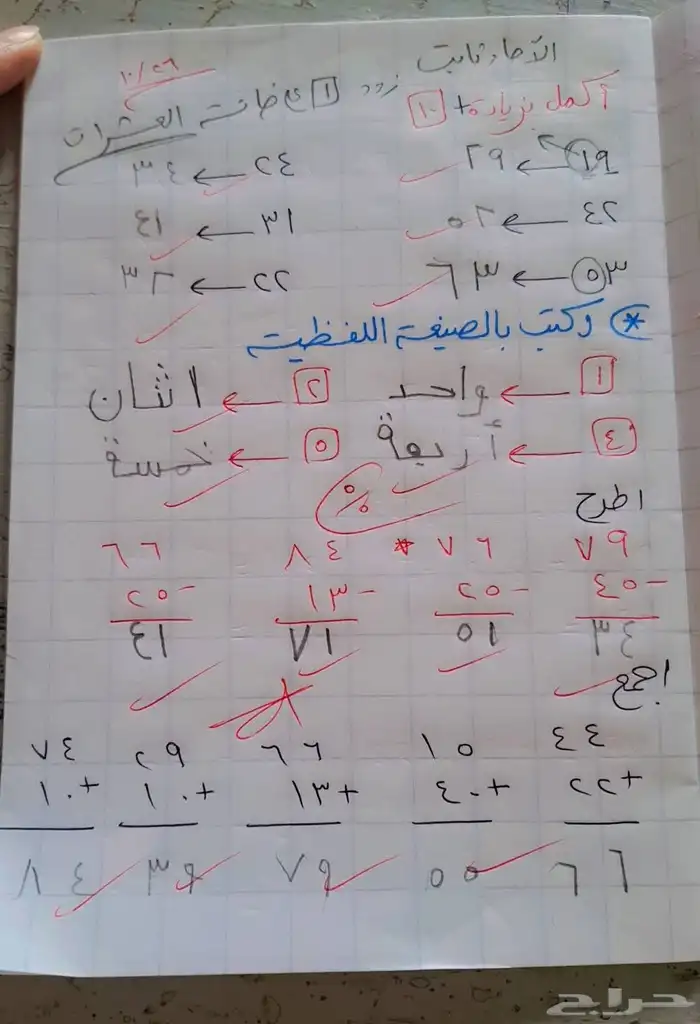 الآحاد ثابت نزود ١ في خانة العشرات
١٠/٢٦
أكمل بزيادة + ١٠
١٩ ← ٢٩   ٢٤ ← ٣٤
٤٢ ← ٥٢   ٣١ ← ٤١
٥٣ ← ٦٣   ٢٢ ← ٣٢
* وكتب بالصيغة اللفظية
١ ← واحد   ٢ ← اثنان
٤ ← أربعة   ٥ ← خمسة
اطرح
٧٩   ٧٦ *   ٨٤   ٦٦
- ٤٥   - ٢٥   - ١٣   - ٢٥
٣٤   ٥١   ٧١   ٤١
اجمع
٤٤   ١٥   ٦٦   ٢٩   ٧٤
+ ٢٢   + ٤٠   + ١٣   + ١٠   + ١٠
٦٦   ٥٥   ٧٩   ٣٩   ٨٤
حراج